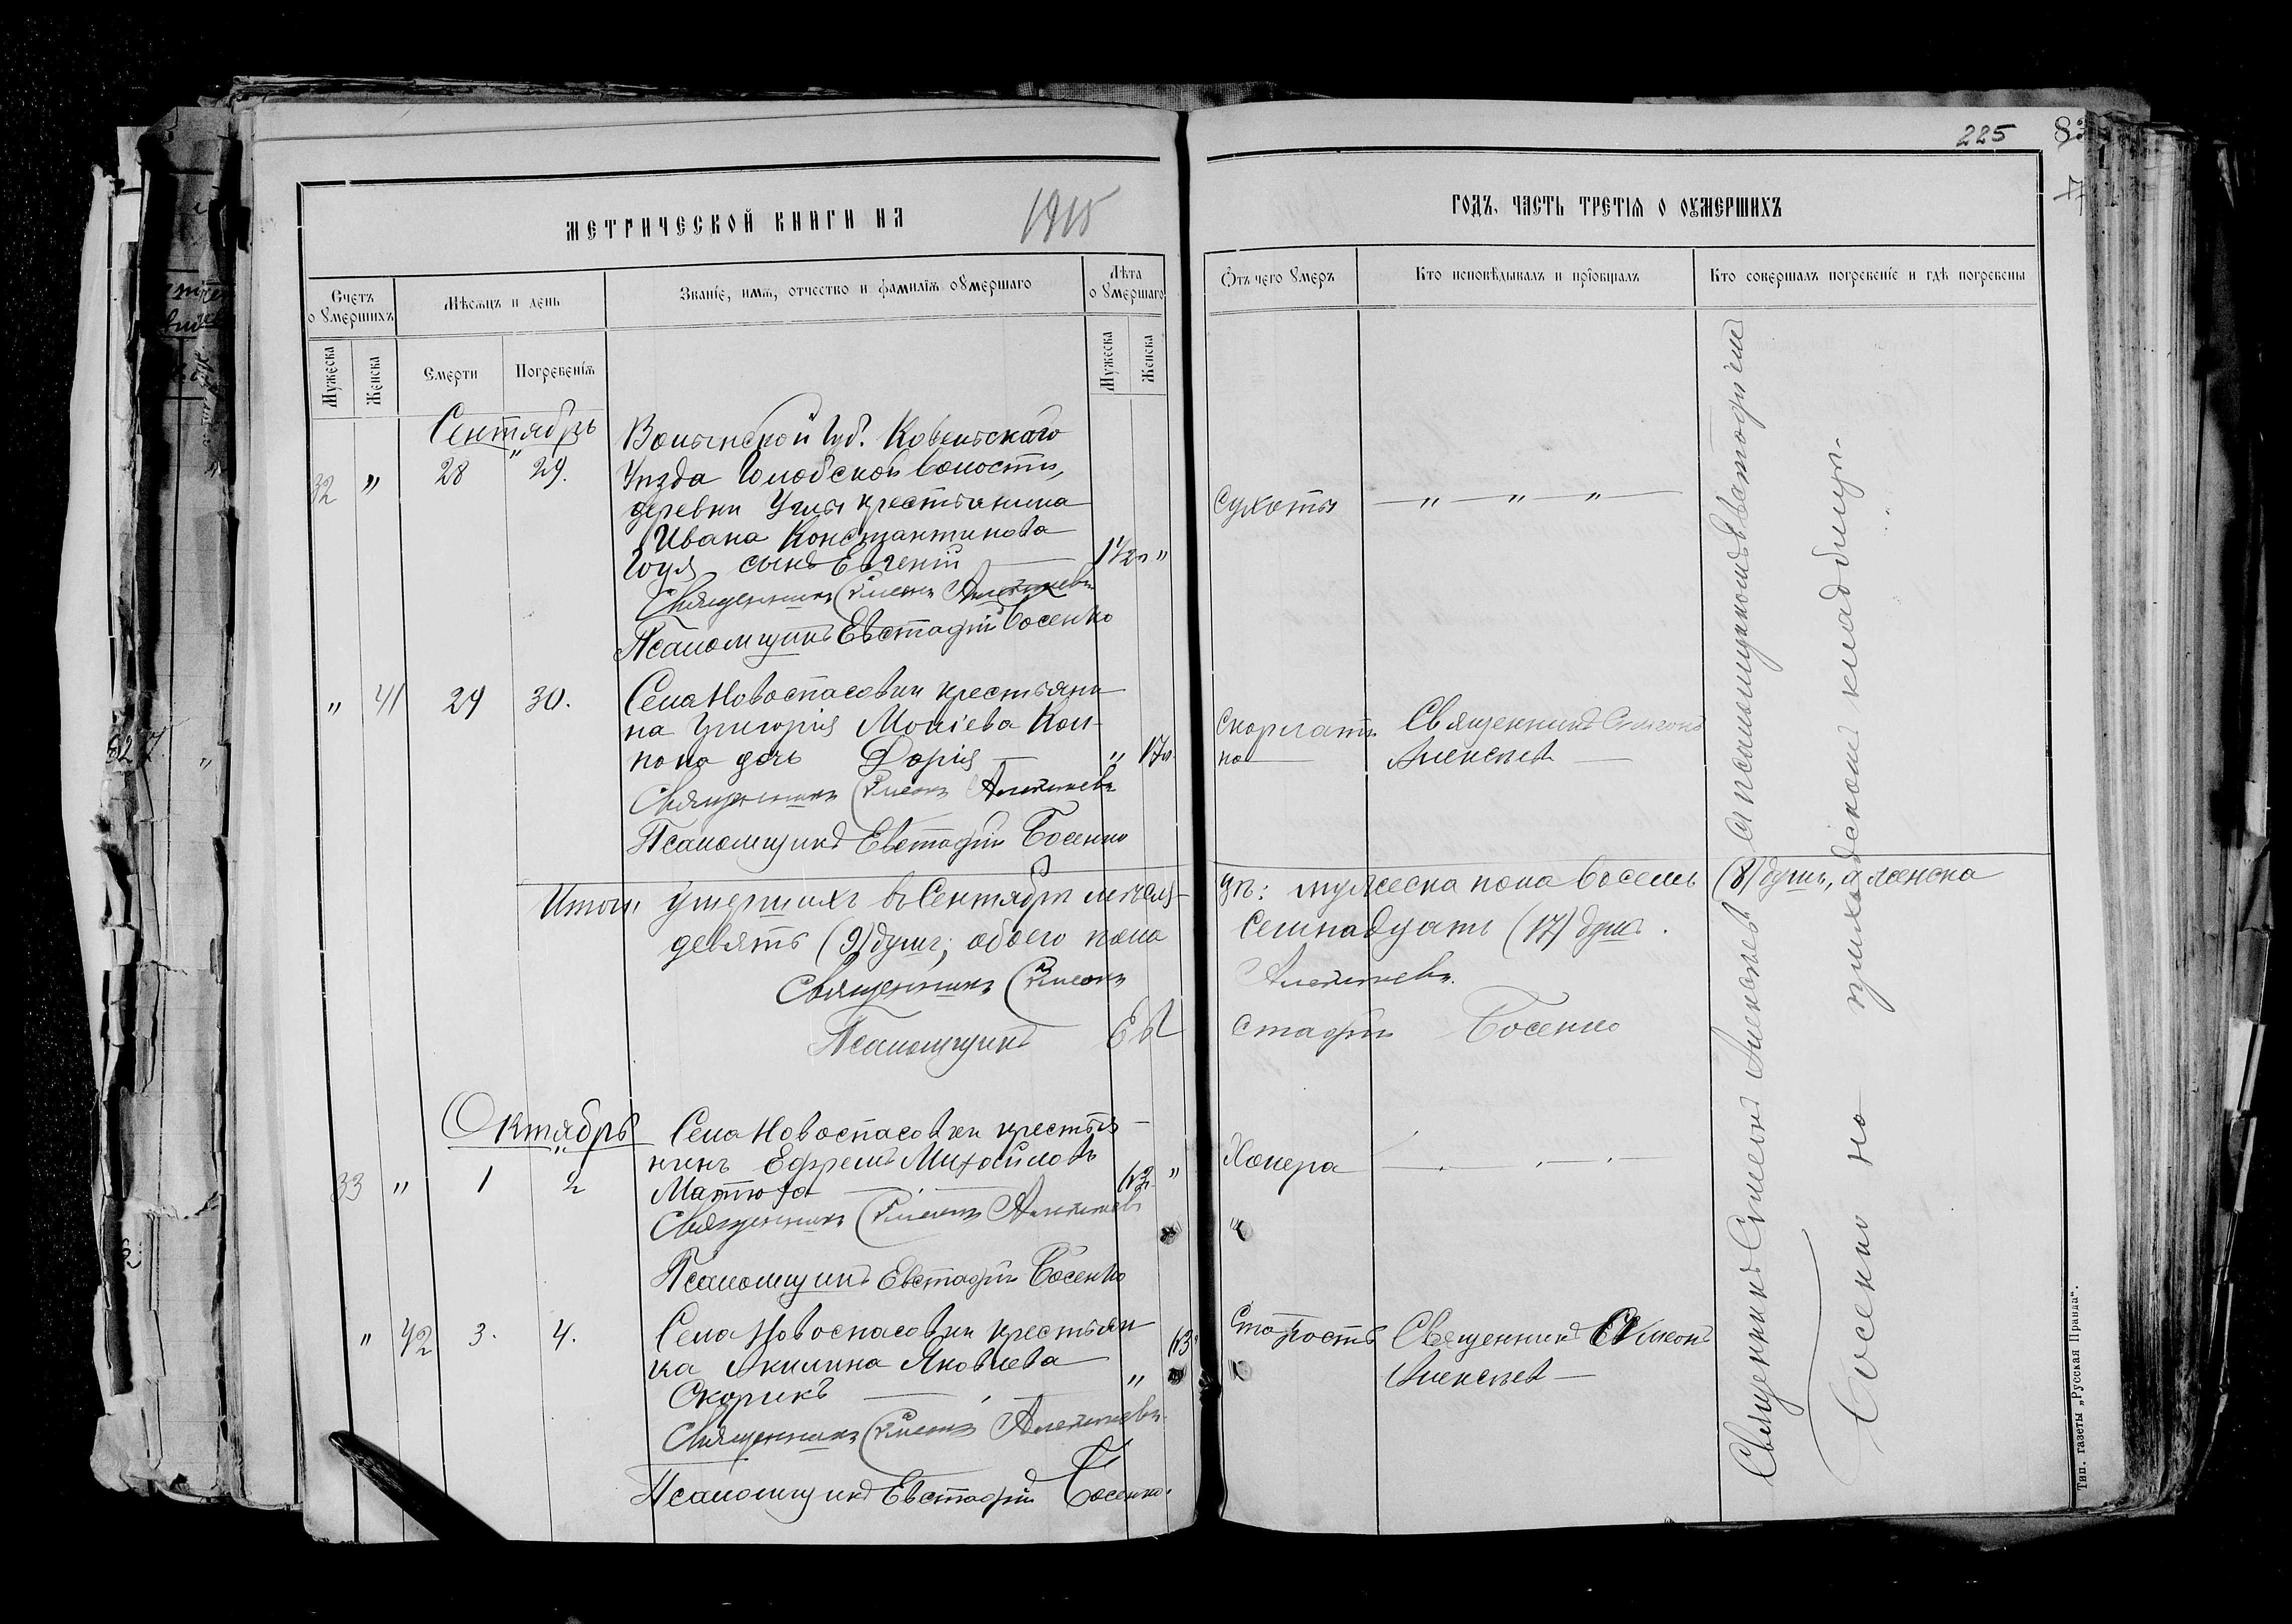 МЕТРИЧЕСКОЙ КНИГИ НА 1915
Счетъ оумершихъ
Мѣсяцъ и день
Званіе, имя, отчество и фамилія оумершаго
Лѣта оумершаго
Мужеска
Женска
Смерти
Погребенія
Мужеска
Женска
Сентябрь
32 " 28 " 29.
Волынской губ. Ковельскаго
Уѣзда Голобской волости,
деревни Углы крестьянина
Ивана Константинова
Гоуя сынъ Евгеній — 1½ "
Священникъ Симеонъ Алексѣевъ
Псаломщикъ Евстафій Босенко
" 41 29 30.
Села Новоспасовки крестьяни
на Григорія Мокіева
дочь Дарія — " 17
Священникъ Симеонъ Алексѣевъ
Псаломщикъ Евстафій Босенко
Итого умершихъ въ Сентябрѣ мѣся-
девять (9) душъ; обоего пола
Священникъ Симеонъ
Псаломщикъ Ев
Октябрь
33 " 1 " 2
Села Новоспасовки крестья-
нинъ Ефремъ Михайловъ
Матюха — "
Священникъ Симеонъ Алексѣевъ
Псаломщикъ Евстафій Босенко
" 42 3. 4.
Села Новоспасовки крестьян
ка Акилина Яковлева
Скорикъ — "
Священникъ Симеонъ Алексѣевъ
Псаломщикъ Евстафій Босенко.
225
ГОДЪ. ЧАСТЬ ТРЕТІЯ О ОУМЕРШИХЪ
Отъ чего умеръ
Кто исповѣдывалъ и пріобщалъ
Кто совершалъ погребеніе и гдѣ погребены
Сухоты — " — " — " —
Скарлати
на —
Священникъ Симеонъ
Алексѣевъ —
цѣ: мужеска пола восемь (8) душъ, а женска
семнадцать (17) душъ.
Алексѣевъ.
стафій Босенко
Холера
Старость
Священникъ Симеонъ
Алексѣевъ —
Священникъ Симеонъ Алексѣевъ съ псаломщикомъ Евстафіемъ
Босенко на приходскомъ кладбищѣ.
Тип. газеты „Русская Правда".